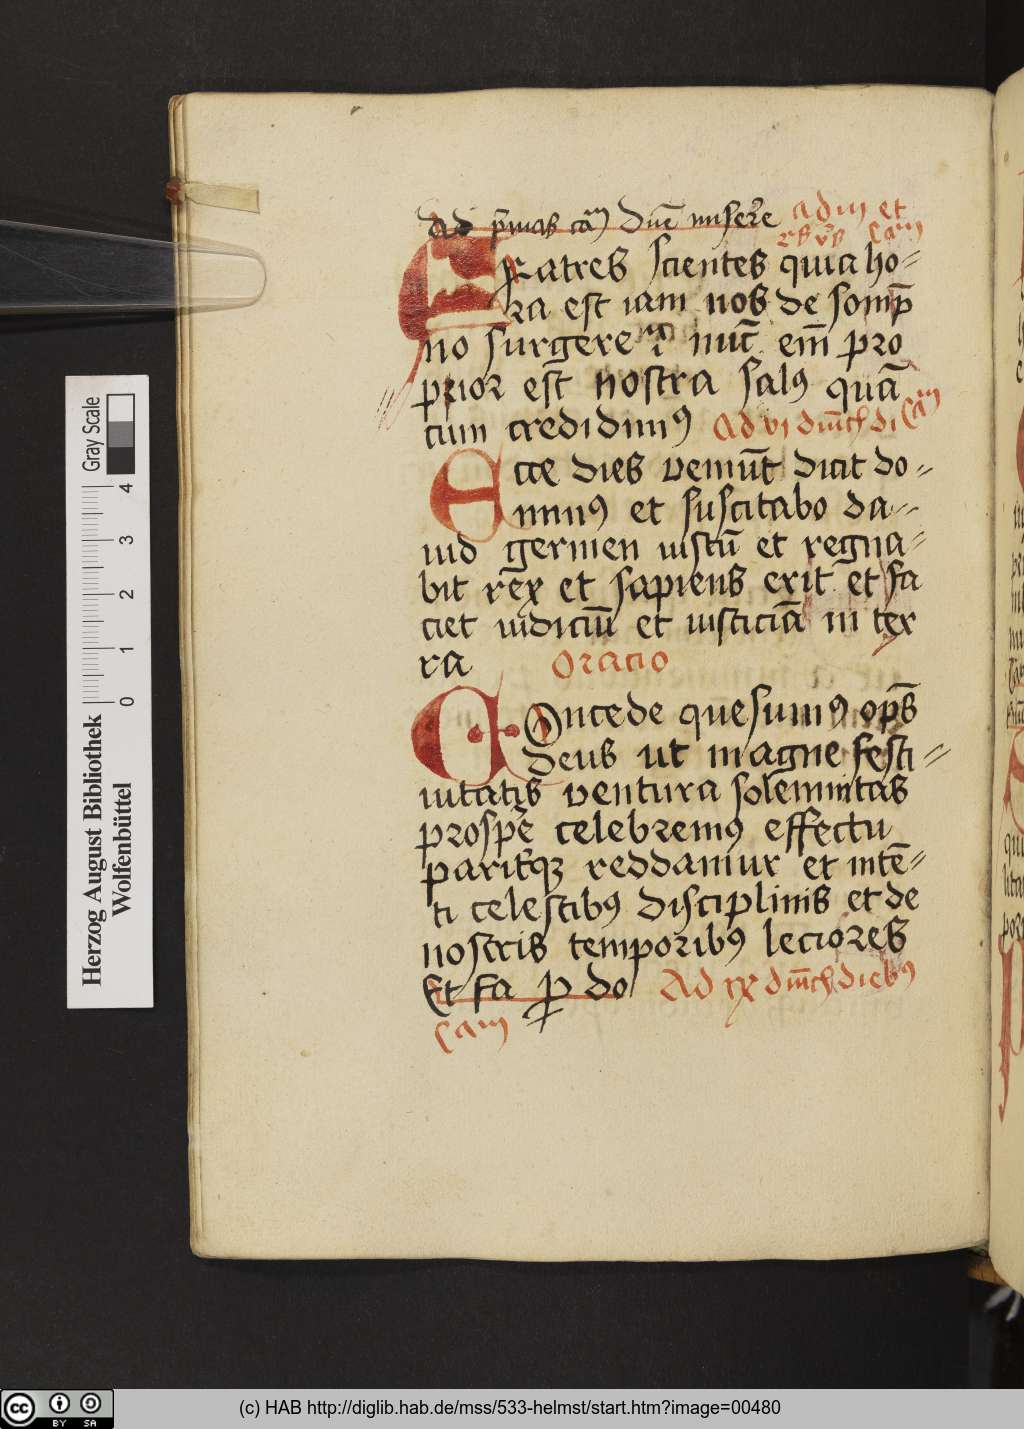 ad p̄mas ca᷑m Dn̄e miserē ad iii et
rs v̄s Cam
Fratres scientes quia ho-
ra est iam nos de somp̄
no surgere ni nūc em̄ pro
prior est nostra salꝰ quā
cum credidimꝰ Ad vi dn̄ich di Cam
Ecce dies veniūt dicit do-
minꝰ et suscitabo da-
uid germen iustū et regna-
bit rex et sapiens erit et fa
ciet iudiciū et iusticiā in ter
ra Oratio
Concede quesumꝰ op̄s
deus ut magne festi-
uitatis ventura solemnitas
prospē celebremꝰ effectu
parit᷑qꝫ reddamur et intē-
ti celestibꝰ disciplinis et de
nostris temporibꝰ lectores
Et fa p do Ad ix dn̄ich diebꝰ
Cam
Gray Scale
0 1 2 3 4
Herzog August Bibliothek
Wolfenbüttel
cc BY SA
(c) HAB http://diglib.hab.de/mss/533-helmst/start.htm?image=00480